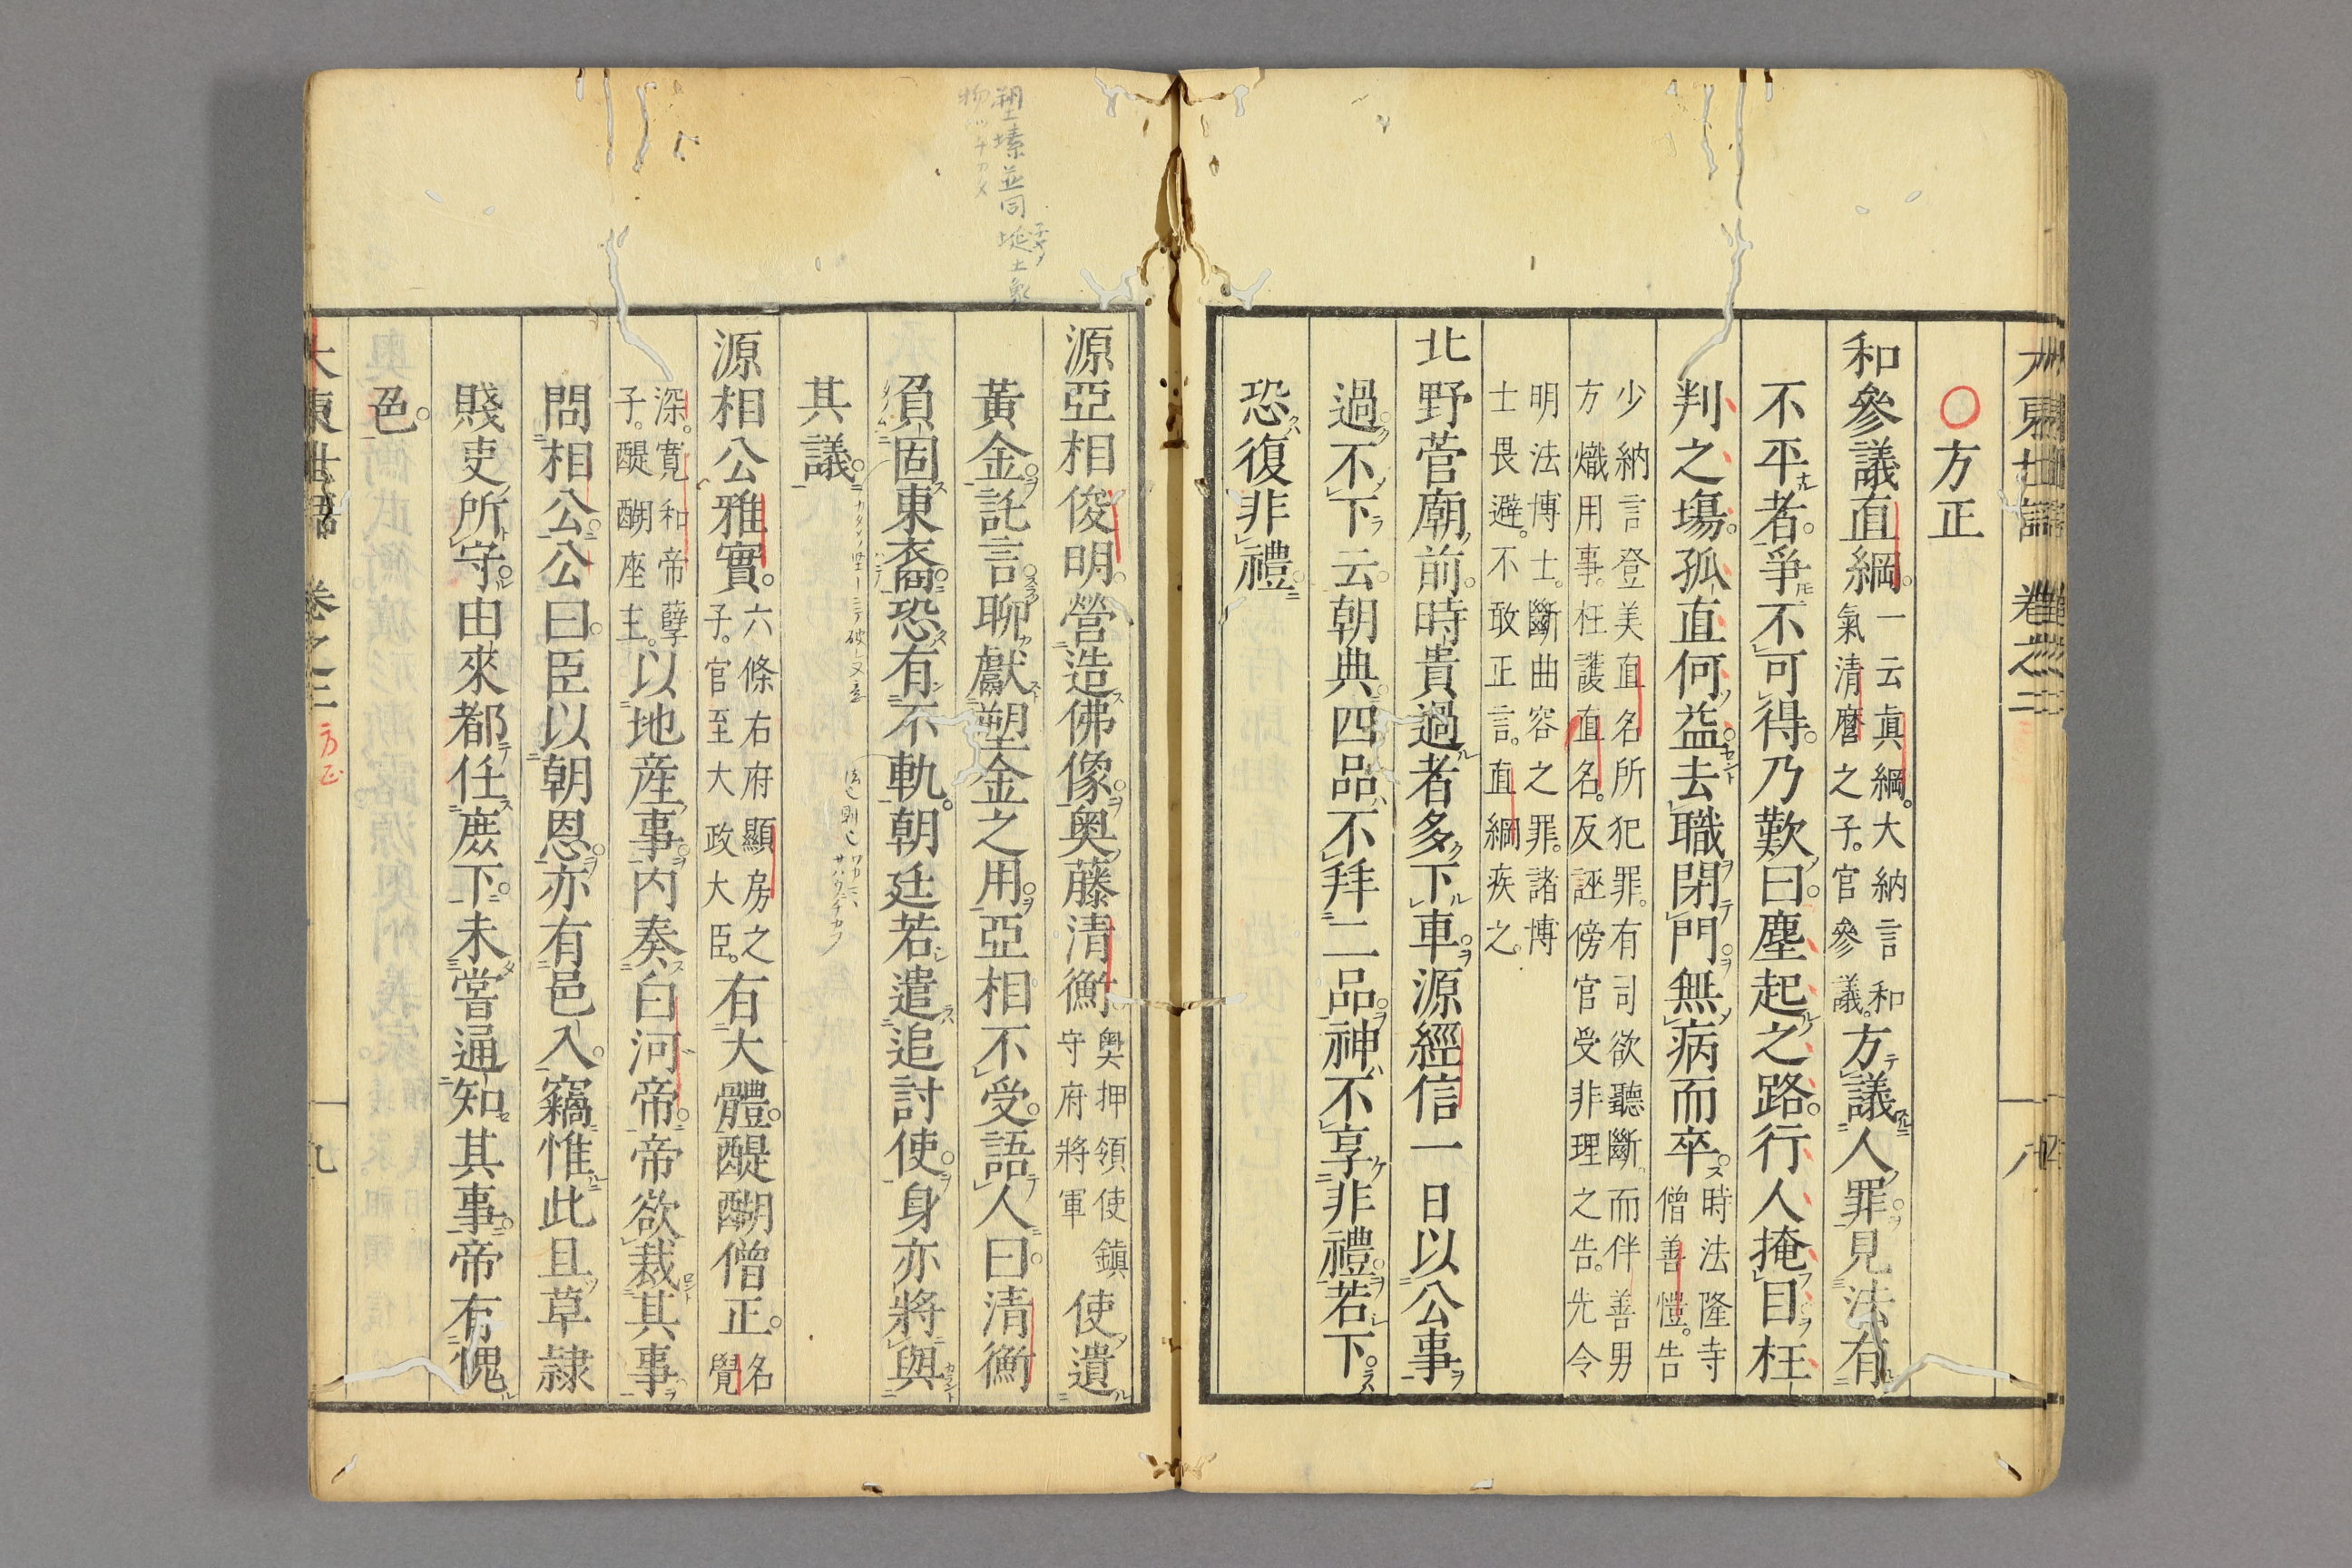 方正
和參議直綱。一云眞綱。大納言和
氣清麿之子。官參議。方議人罪見法有
不平者。爭不可得。乃歎曰塵起之路。行人掩目枉
判之塲。孤直何益。去職閉門。無病而卒。時法隆寺
僧善愷。告
少納言登美直名所犯罪。有司欲聽斷。而伴善男
方熾用事。枉護直名。反誣傍官受非理之告。先令
明法博士。斷曲容之罪。諸博
士畏避。不敢正言。直綱疾之。
北野菅廟前。時貴過者多下車。源經信一日以公事
過。不下云。朝典。四品不拜二品。神不享非禮。若下。
恐復非禮。
源亞相俊明。營造佛像。奥藤清衡。奥押領使鎮
守府將軍使遺
黄金。託言。聊獻塑金之用。亞相不受。語人曰。清衡
負固東裔。恐有不軌。朝廷若遣追討使。身亦將與
其議。
源相公雅實。六條右府顯房之
子。官至大政大臣。有大體。醍醐僧正。名
覺
深。寛和帝孽
子。醍醐座主。以地産事。内奏白河帝。帝欲裁其事
問相公。公曰。臣以朝恩。亦有邑入。竊惟此且草隷
賤吏所守。由來都任麾下。未嘗通知其事。帝有愧
色。
大東世語 卷之二 方正
九
塑塐並同 埏土象